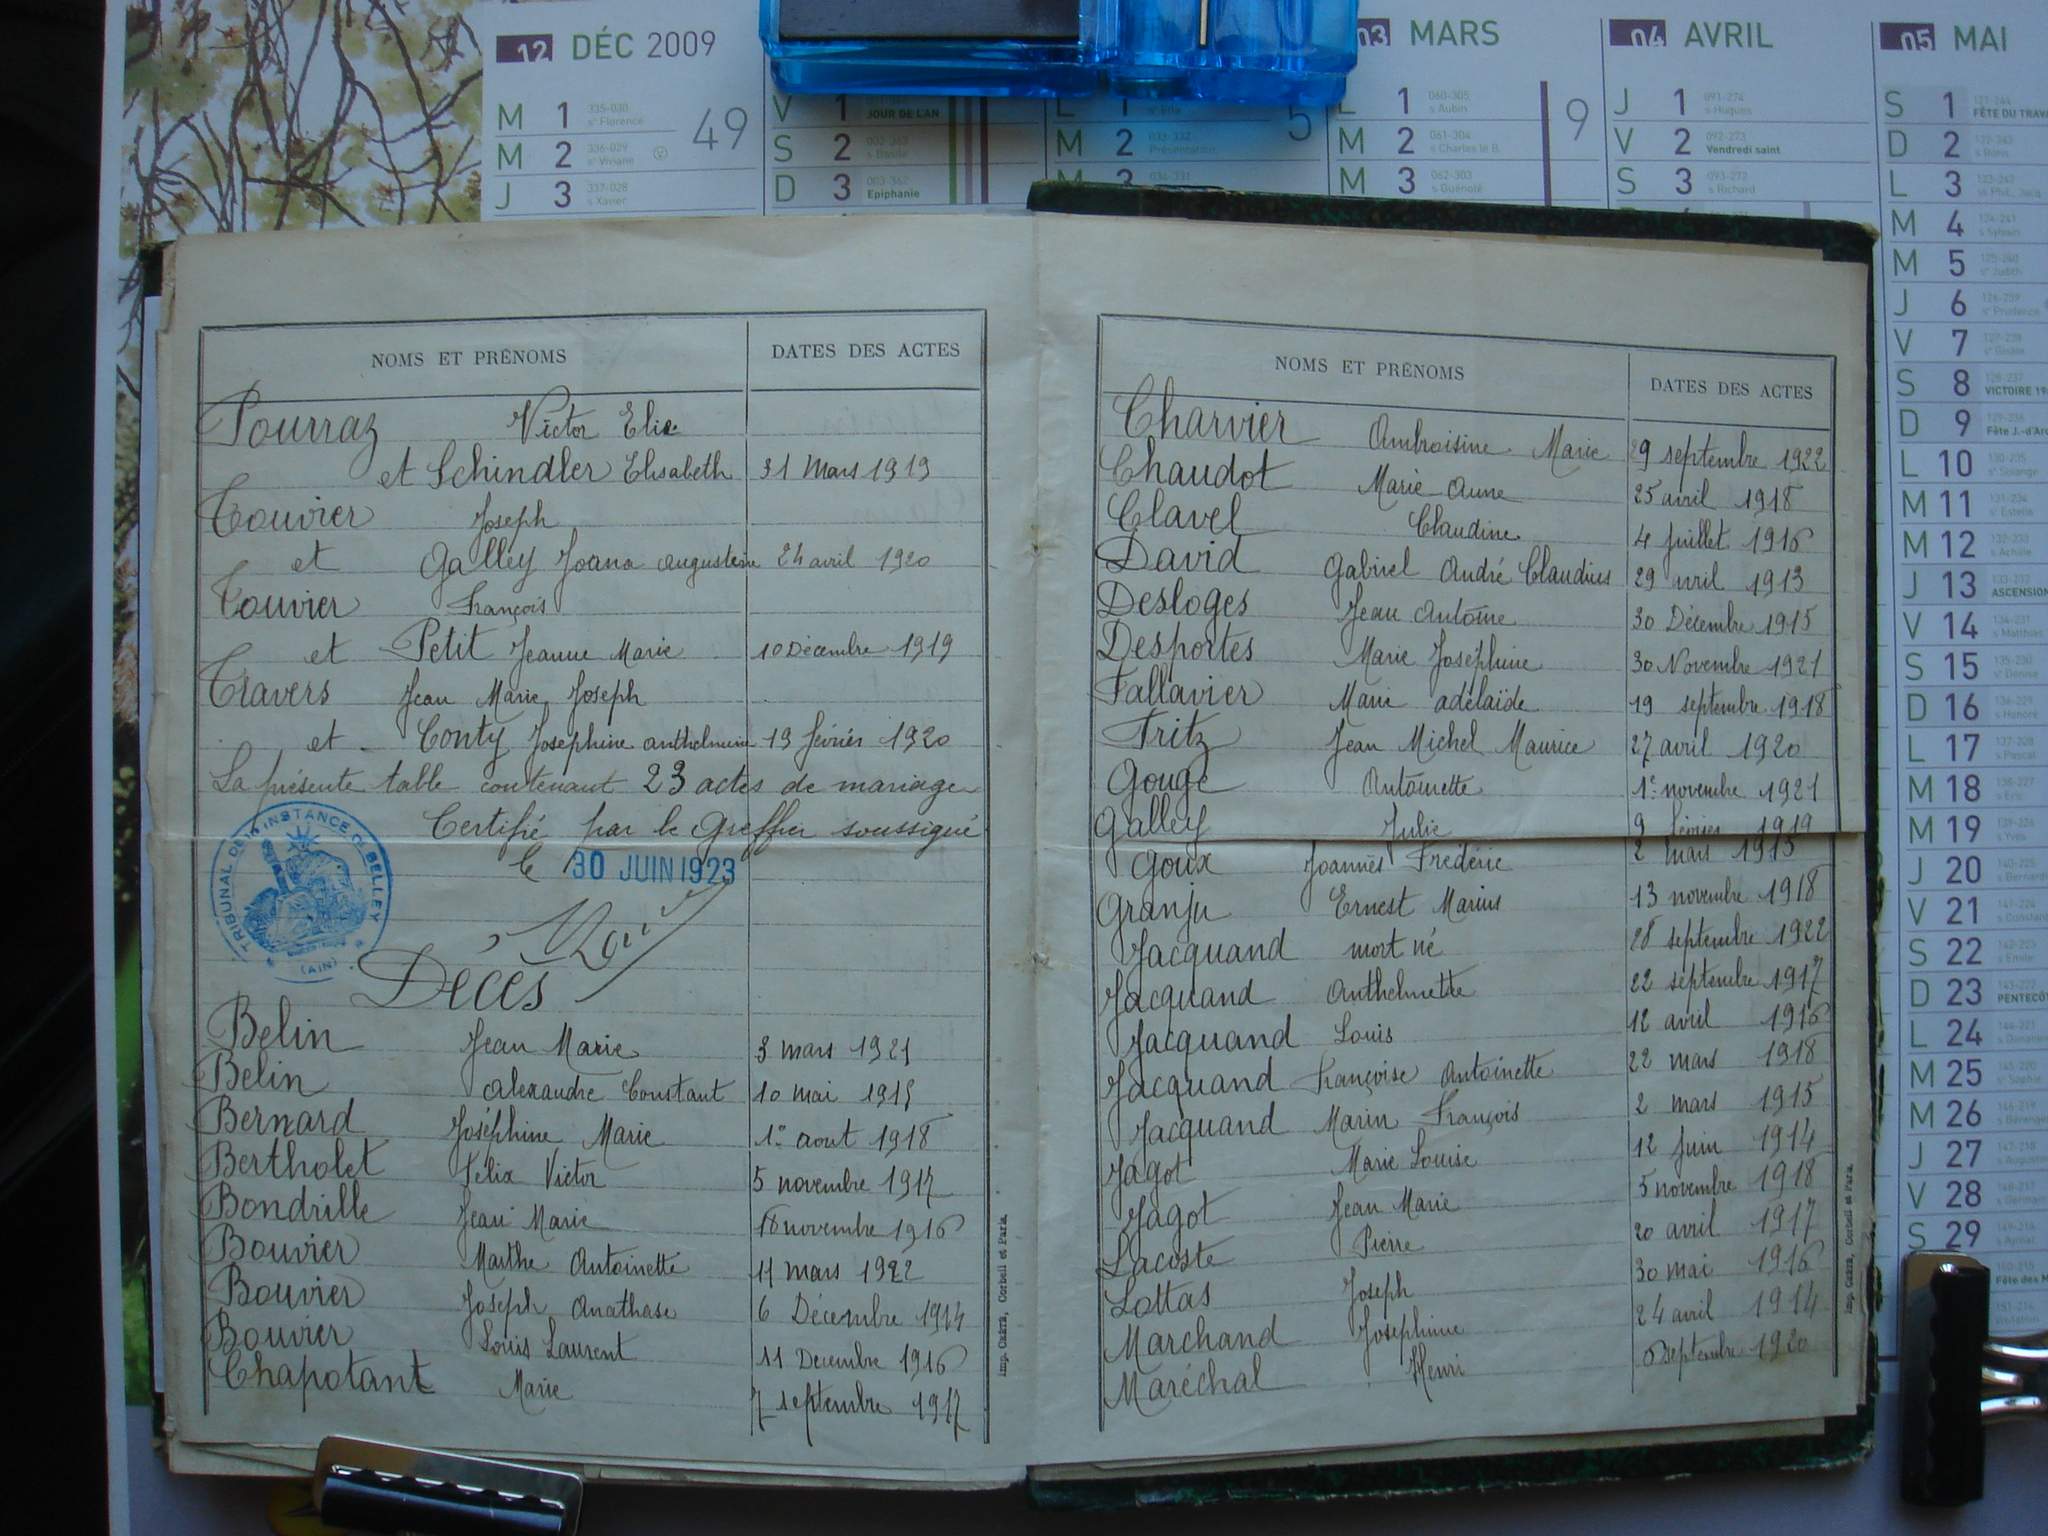 12 DÉC 2009
M 1 335-030 se Florence
49
M 2 336-029 se Viviane
J 3 337-028 s Xavier
V 1 JOUR DE L'AN
S 2 002-363 s Basile
D 3 003-362 Epiphanie
L 1 se Ella
5
M 2 033-332 Présentation
M 3 034-331
03 MARS
L 1 060-305 s Aubin
9
M 2 061-304 s Charles le B.
M 3 062-303 s Guénolé
04 AVRIL
J 1 091-274 s Hugues
V 2 092-273 Vendredi saint
S 3 093-272 s Richard
05 MAI
S 1 121-244 FÊTE DU TRAV
D 2 s Boris
L 3 st Phil., Jacq
M 4 s Sylvain
M 5 se Judith
J 6 se Prudence
V 7 se Gisèle
S 8 VICTOIRE 19
D 9 Fête J.-d'Arc
L 10 se Solange
M 11 se Estelle
M 12 s Achille
J 13 ASCENSION
V 14 s Matthias
S 15 se Denise
D 16 s Honoré
L 17 s Pascal
M 18 s Eric
M 19 s Yves
J 20 s Bernardin
V 21 s Constantin
S 22 s Emile
D 23 PENTECÔT
L 24 s Donatien
M 25 se Sophie
M 26 s Bérenger
J 27 s Augustin
V 28 s Germain
S 29 s Aymar
Fête des M
NOMS ET PRÉNOMS DATES DES ACTES
Pourraz Victor Elie
et Schindler Elisabeth 31 Mars 1919
Touvier Joseph
et Galley Joana Augustine 24 avril 1920
Touvier François
et Petit Jeanne Marie 10 Décembre 1919
Travers Jean Marie Joseph
et Conty Josephine anthelmine 19 février 1920
La présente table contenant 23 actes de mariage
Certifié par le Greffier soussigné
le 30 JUIN 1923
TRIBUNAL DE 1re INSTANCE DE BELLEY
(AIN)
Décès
Belin Jean Marie 3 mars 1921
Belin Alexandre Constant 10 mai 1915
Bernard Joséphine Marie 1er aout 1918
Bertholet Felix Victor 5 novembre 1917
Bondrille Jean Marie 18 novembre 1916
Bouvier Marthe Antoinette 11 mars 1922
Bouvier Joseph Anathase 6 Décembre 1914
Bouvier Louis Laurent 11 Decembre 1916
Chapotant Marie 7 septembre 1917
Imp. Carré, Corbeil et Paris.
NOMS ET PRÉNOMS DATES DES ACTES
Charvier Ambroisine Marie 29 septembre 1922
Chaudot Marie Anne 25 avril 1918
Clavel Claudine 4 juillet 1916
David Gabriel André Claudius 29 avril 1913
Desloges Jean Antoine 30 Décembre 1915
Desportes Marie Joséphine 30 Novembre 1921
Fallavier Marie adélaïde 19 septembre 1918
Fritz Jean Michel Maurice 27 avril 1920
Gouge Antoinette 1er novembre 1921
Galley Julie 9 février 1919
Goux Joannès Frédéric 2 mars 1915
Granju Ernest Marius 13 novembre 1918
Jacquand mort né 28 septembre 1922
Jacquand Anthelmette 22 septembre 1917
Jacquand Louis 12 avril 1916
Jacquand Françoise Antoinette 22 mars 1918
Jacquand Marin François 2 mars 1915
Jagot Marie Louise 12 juin 1914
Jagot Jean Marie 5 novembre 1918
Lacoste Pierre 20 avril 1917
Lottas Joseph 30 mai 1916
Marchand Josephine 24 avril 1914
Maréchal Henri 6 Septembre 1920
Imp. Carré, Corbeil et Paris.